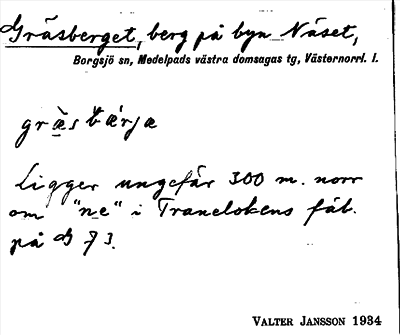 Gräsberget, berg på byn Näset,
Borgsjö sn, Medelpads västra domsagas tg, Västernorrl. l.
græ̀s bærjæ
Ligger ungefär 300 m. norr
om "ne" i Tranelokens fäb.
på G 73.
VALTER JANSSON 1934